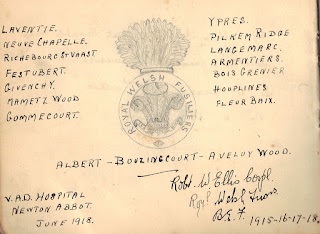 LAVENTIE.
NEUVE CHAPELLE.
RICHEBOURG ST VAAST
FESTUBERT.
GIVENCHY.
MAMETZ WOOD
GOMMECOURT.
YPRES.
PILKEM RIDGE
LANGEMARC.
ARMENTIERS.
BOIS GRENIER
HOUPLINES
FLEUR BAIX.
ROYAL WELSH FUSILIERS
ALBERT - BOUZINGCOURT - AVELUY WOOD.
Robt W. Ellis Corpl.
Royl Welsh Fusrs.
B.E.F. 1915-16-17-18.
V.A.D. HOSPITAL
NEWTON ABBOT.
JUNE 1918.